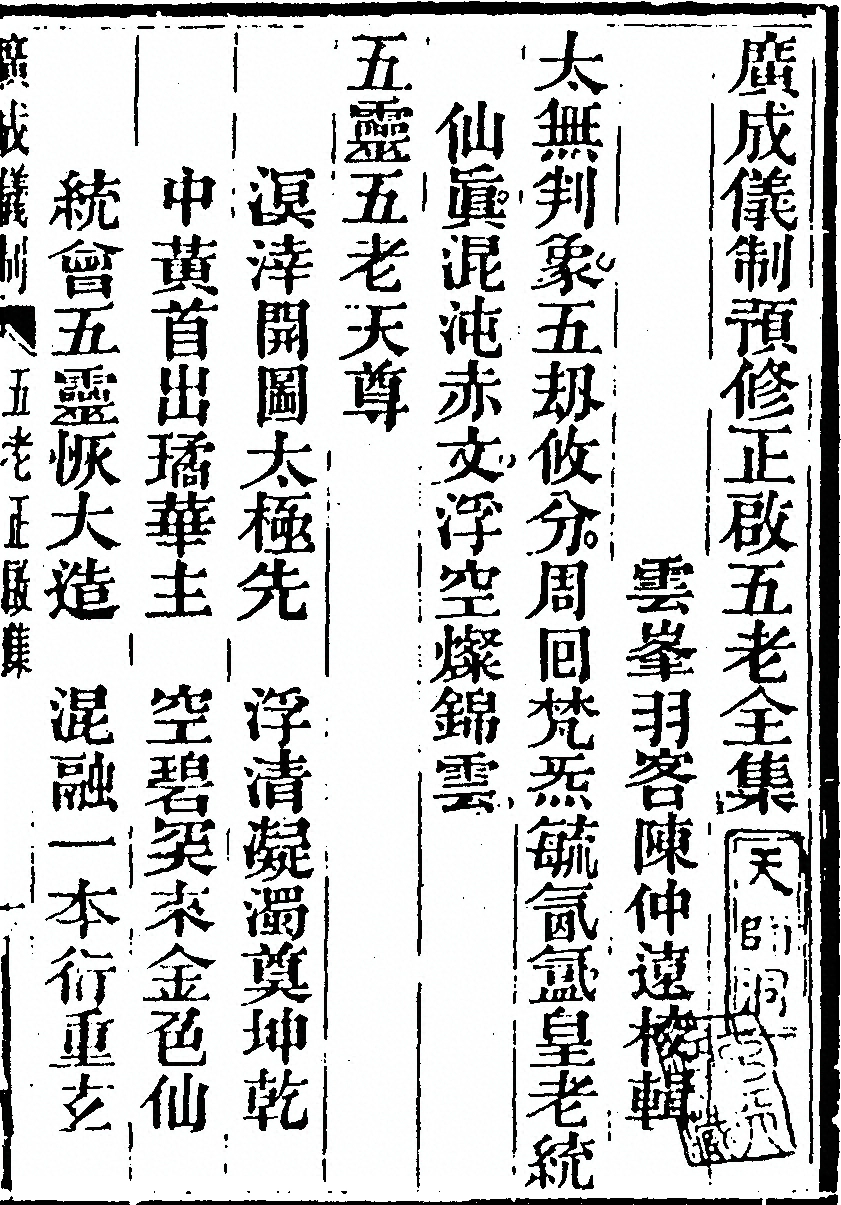 廣成儀制預修正啟五老全集
天師洞
雲峯羽客陳仲遠校輯
太無判象五劫攸分周回梵炁毓氤氳皇老統
仙眞混沌赤文浮空燦錦雲
五靈五老天尊
溟涬開圖太極先　浮清凝濁奠坤乾
中黃首出璚華主　空碧突來金色仙
統會五靈恢大造　混融一本衍重玄
廣成儀制　五老正啟集　一